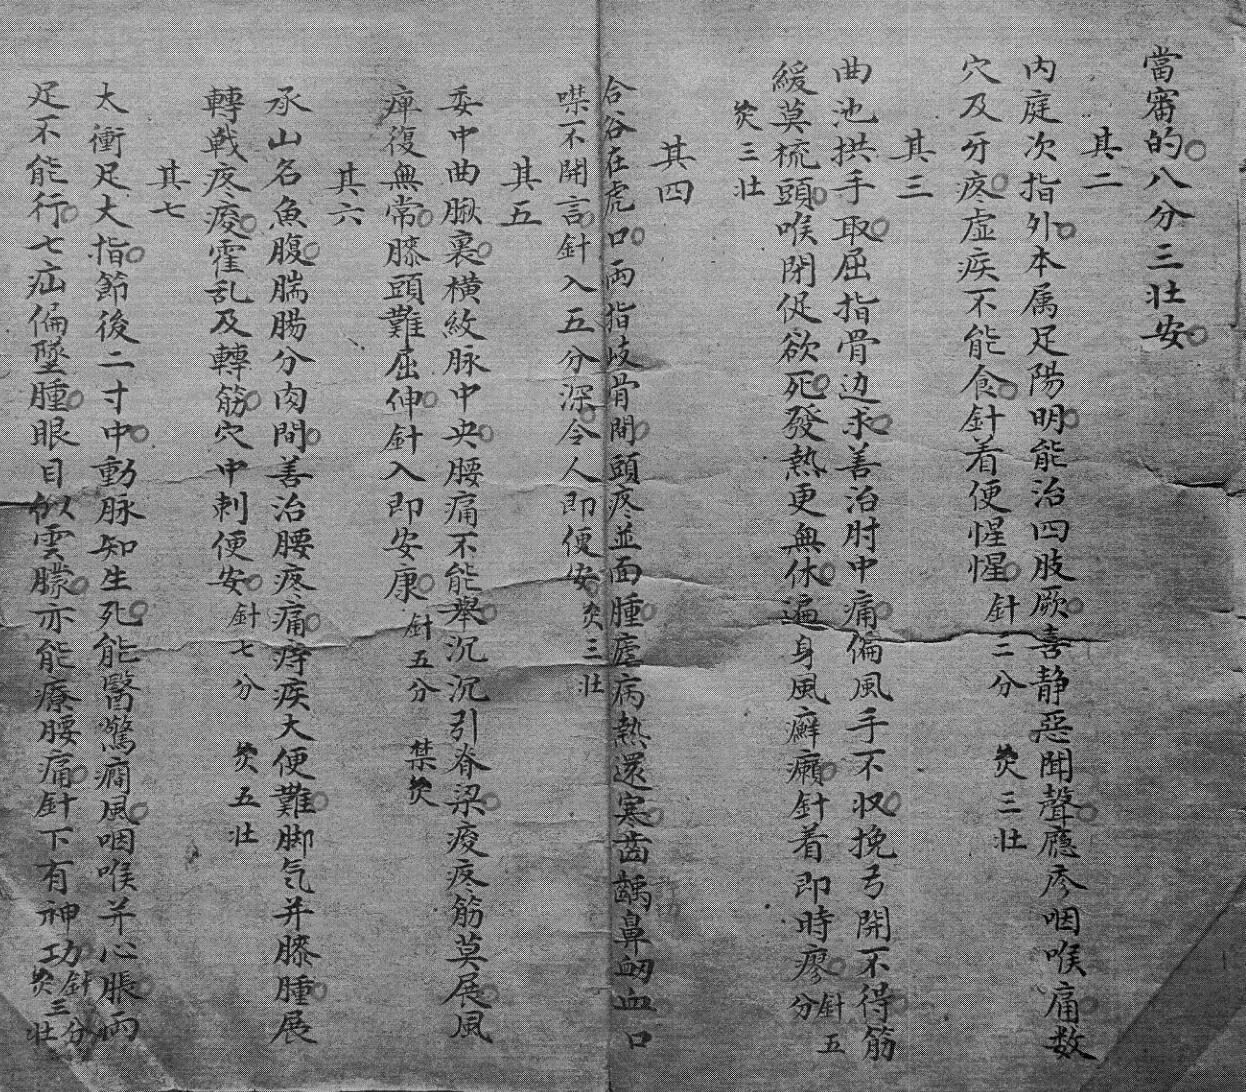 當審的八分三壯安
其二
内庭次指外本属足陽明能治四肢厥喜静惡聞聲癮疹咽喉痛数
穴及牙疼虚疾不能食針着便惺惺針三分 灸三壯
其三
曲池拱手取屈指骨边求善治肘中痛偏風手不収挽弓開不得筋
緩莫梳頭喉閉促欲死發熱更無休遍身風癬癩針着即時瘳針五分
灸三壯
其四
合谷在虎口兩指歧骨間頭疼並面腫瘧病熱還寒齒齲鼻衂血口
噤不開言針入五分深令人即便安灸三壯
其五
委中曲脉裏横紋脉中央腰痛不能舉沉沉引脊梁痠疼筋莫展風
痺復無常膝頭難屈伸針入即安康針五分 禁灸
其六
承山名魚腹腨腸分肉間善治腰疼痛痔疾大便難脚気并膝腫展
轉戦疼痠霍乱及轉筋穴中刺便安針七分 灸五壯
其七
太衝足大指節後二寸中動脉知生死能醫驚癎風咽喉并心脹両
足不能行七疝偏墜腫眼目似雲朦亦能療腰痛針下有神功針三分灸三壯